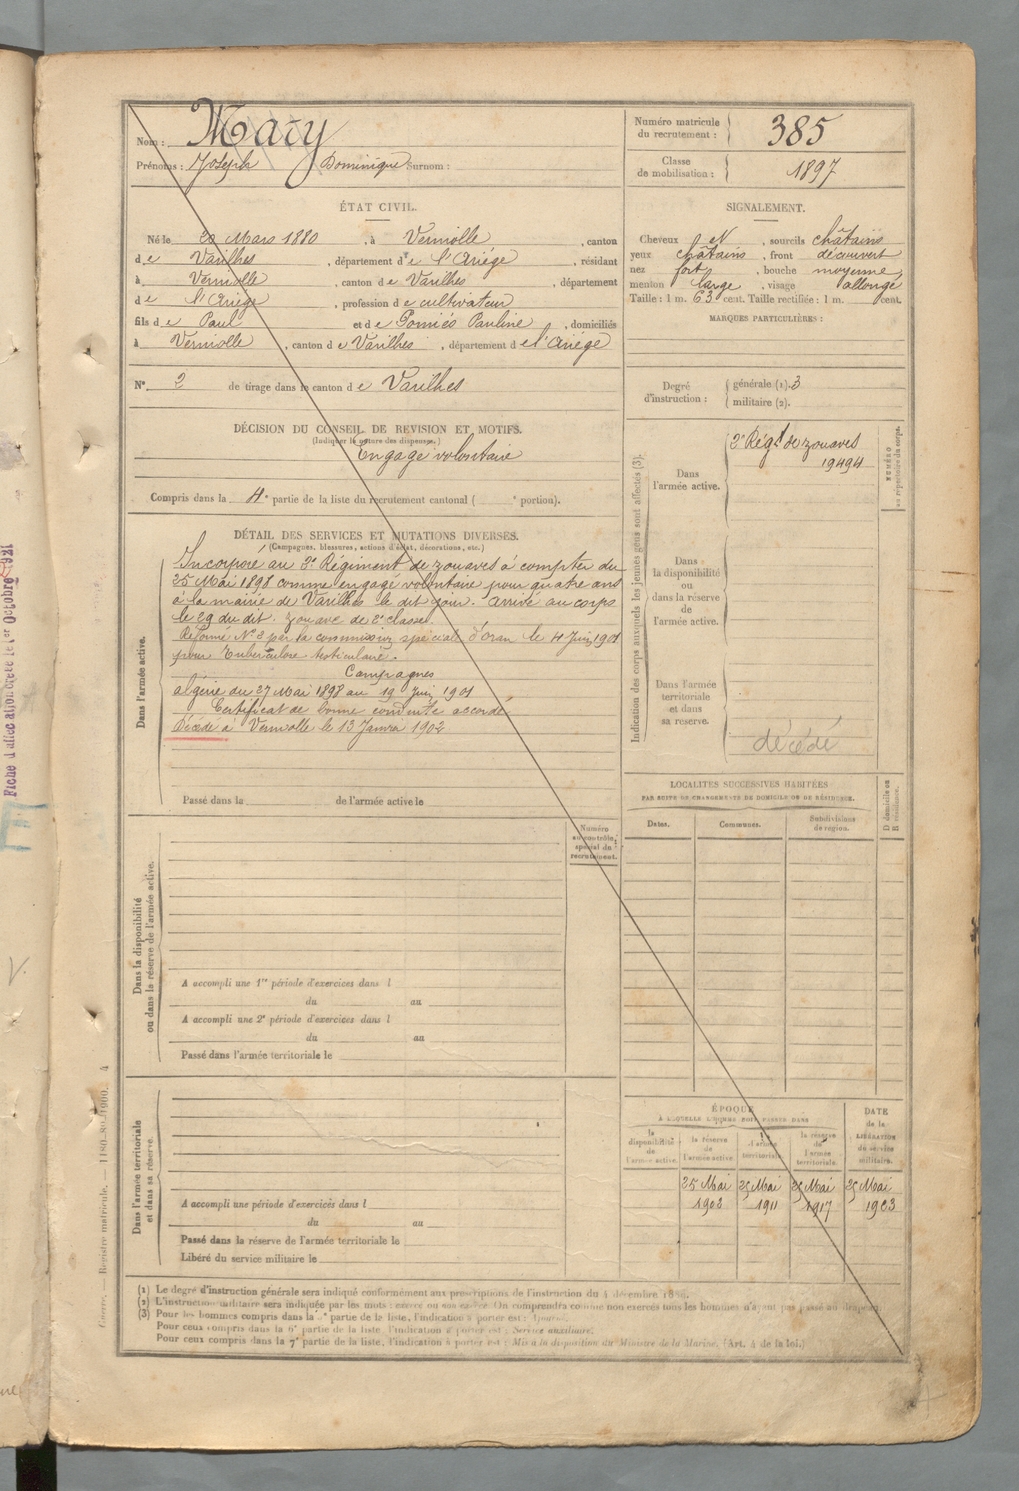 Nom : Mary
Prénoms : Joseph Dominique Surnom :
Numéro matricule
du recrutement : 385
Classe
de mobilisation : 1897
ÉTAT CIVIL.
Né le 20 Mars 1880, à Verniolle, canton
de Varilhes, département de l'Ariége, résidant
à Verniolle, canton de Varilhes, département
de l'Ariége, profession de cultivateur
fils de Paul et de Gomiés Pauline, domiciliés
à Verniolle, canton de Varilhes, département de l'Ariége
N° 2 de tirage dans le canton de Varilhes
SIGNALEMENT.
Cheveux et N, sourcils châtains
yeux châtains, front découvert
nez fort, bouche moyenne
menton large, visage allongé
Taille : 1 m. 63 cent. Taille rectifiée : 1 m. cent.
MARQUES PARTICULIÈRES :
Degré
d'instruction :
générale (1). 3
militaire (2).
DÉCISION DU CONSEIL DE REVISION ET MOTIFS.
(Indiquer la nature des dispenses.)
Engagé volontaire
Compris dans la 4e partie de la liste du recrutement cantonal ( e portion).
DÉTAIL DES SERVICES ET MUTATIONS DIVERSES.
(Campagnes, blessures, actions d'éclat, décorations, etc.)
Dans l'armée active.
Incorporé au 2e Régiment de zouaves à compter du
25 Mai 1898 comme engagé volontaire pour quatre ans
à la mairie de Varilhes le dit jour. arrivé au corps
le 29 du dit. zouave de 2e classe.
Réformé N° 2 par la commission spéciale d'Oran le 4 Juin 1901
pour Tuberculose testiculaire.
Campagnes
algérie du 27 Mai 1898 au 19 Juin 1901
Certificat de bonne conduite accordé
Décédé à Verniolle le 13 Janvier 1902
Passé dans la de l'armée active le
Indication des corps auxquels les jeunes gens sont affectés (3).
Dans
l'armée active.
2e Régt de zouaves
19494
NUMÉRO
au répertoire du corps.
Dans
la disponibilité
ou
dans la réserve
de
l'armée active.
Dans l'armée
territoriale
et dans
sa réserve.
décédé
LOCALITÉS SUCCESSIVES HABITÉES
PAR SUITE DE CHANGEMENTS DE DOMICILE OU DE RÉSIDENCE.
Dates.
Communes.
Subdivisions
de région.
D domicile ou
R résidence.
Numéro
au contrôle
spécial du
recrutement.
Dans la disponibilité
ou dans la réserve de l'armée active.
A accompli une 1re période d'exercices dans l
du au
A accompli une 2e période d'exercices dans l
du au
Passé dans l'armée territoriale le
Dans l'armée territoriale
et dans sa réserve.
A accompli une période d'exercices dans l
du au
Passé dans la réserve de l'armée territoriale le
Libéré du service militaire le
ÉPOQUE
À LAQUELLE L'HOMME DOIT PASSER DANS
la
disponibilité
de
l'armée active.
la réserve
de
l'armée active.
l'armée
territoriale.
la réserve
de
l'armée
territoriale.
DATE
de la
LIBÉRATION
du service
militaire.
25 Mai 25 Mai 25 Mai 25 Mai
1902 1911 1917 1923
(1) Le degré d'instruction générale sera indiqué conformément aux prescriptions de l'instruction du 4 décembre
(2) L'instruction militaire sera indiquée par les mots : exercé ou non exercé. On comprendra comme non exercés tous les hommes n'ayant pas passé au drapeau.
(3) Pour les hommes compris dans la partie de la liste, l'indication à porter est :
Pour ceux compris dans la 6e partie de la liste, l'indication à porter est : Service auxiliaire.
Pour ceux compris dans la 7e partie de la liste, l'indication à porter est : Mis à la disposition du Ministre de la Marine. (Art. 4 de la loi.)
Guerre. — Registre matricule. 4
Fiche d'affectation créée le 1er Octobre 1921